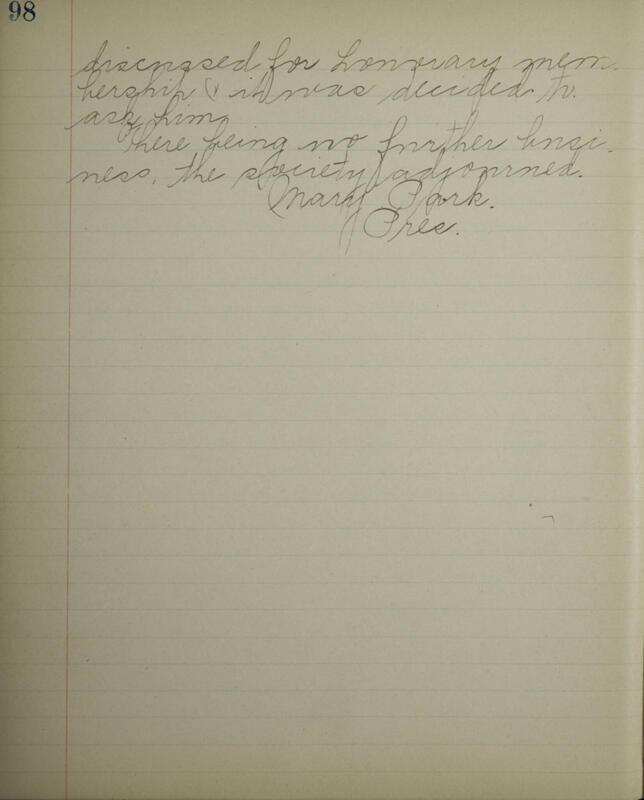 98
discussed for honorary mem-
bership & it was decided to
ask him.
There being no further busi-
ness, the society adjourned.
Mary Park.
Pres.